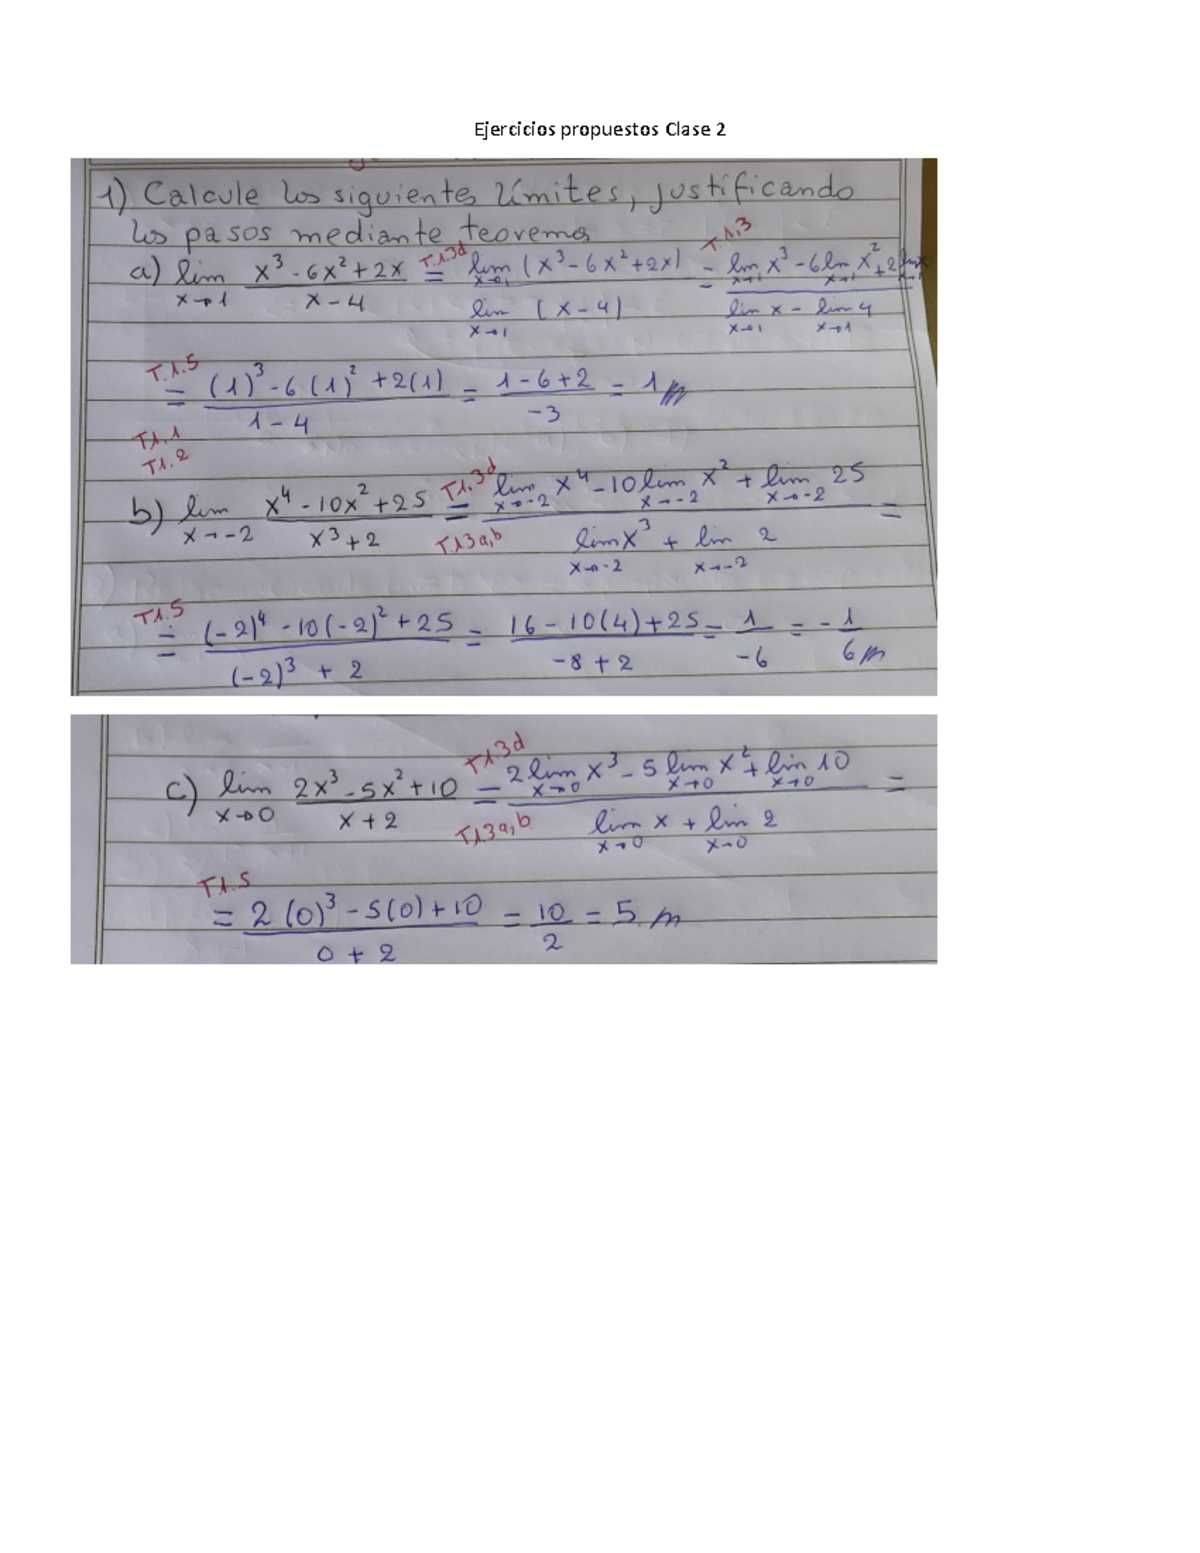 Ejercicios propuestos Clase 2
1) Calcule los siguientes límites, justificando
los pasos mediante teoremas
a) lim x→1 (x³ - 6x² + 2x)/(x - 4) =^(T.1.3d) lim x→1 (x³ - 6x² + 2x) / lim x→1 (x - 4) =^(T.1.3) (lim x→1 x³ - 6 lim x→1 x² + 2 lim x→1 x) / (lim x→1 x - lim x→1 4)
T.1.5 = ((1)³ - 6(1)² + 2(1))/(1 - 4) = (1 - 6 + 2)/(-3) = 1
T1.1
T1.2
b) lim x→-2 (x⁴ - 10x² + 25)/(x³ + 2) =^(T1.3d)_(T.1.3a,b) (lim x→-2 x⁴ - 10 lim x→-2 x² + lim x→-2 25) / (lim x→-2 x³ + lim x→-2 2) =
T1.5 = ((-2)⁴ - 10(-2)² + 25)/((-2)³ + 2) = (16 - 10(4) + 25)/(-8 + 2) = 1/-6 = -1/6
c) lim x→0 (2x³ - 5x² + 10)/(x + 2) =^(T1.3d)_(T1.3a,b) (2 lim x→0 x³ - 5 lim x→0 x² + lim x→0 10) / (lim x→0 x + lim x→0 2) =
T1.5 = (2(0)³ - 5(0) + 10)/(0 + 2) = 10/2 = 5